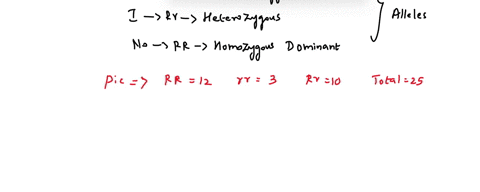 I → Rr → Heterozygous
Alleles
No → RR → Homozygous Dominant
Pic => RR = 12 rr = 3 Rr = 10 Total = 25